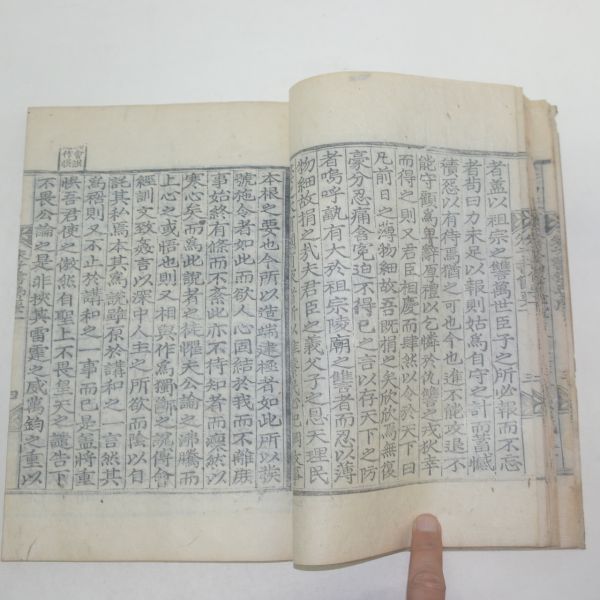 者蓋以祖宗之讎萬世臣子之所必報而不忘
者苟曰力未足以報則姑爲自守之計而蓄憾
積怨以有待焉猶之可也今也進不能攻退不
能守顧爲卑辭厚禮以乞憐於仇讎之戎狄幸
而得之則又君臣相慶而肆然以令於天下曰
凡前日之薄物細故吾既捐之矣欣欣焉無復
豪分忍痛含冤迫不得已之言以存天下之防
者嗚呼孰有大於祖宗陵廟之讎者而忍以薄
物細故捐之哉夫君臣之義父子之恩天理民
本根之要也今所以造端建極者如此所以發
號施令者如此而欲人心固結於我而不離庶
事始終有條而不紊此亦不待知者而凜然以
寒心矣而爲此說者之徒懼夫公論之沸騰而
上心之或悟也則又相與作爲獨斷之說傅會
經訓文致姦言以深中人主之所欲而陰以自
託其私焉本其爲說雖原於講和之一言然其
爲禍則又不止於講和之一事而已是蓋將重
誤吾君使之傲然自聖上不畏皇天之譴告下
不畏公論之是非挾其雷霆之威萬鈞之重以
四